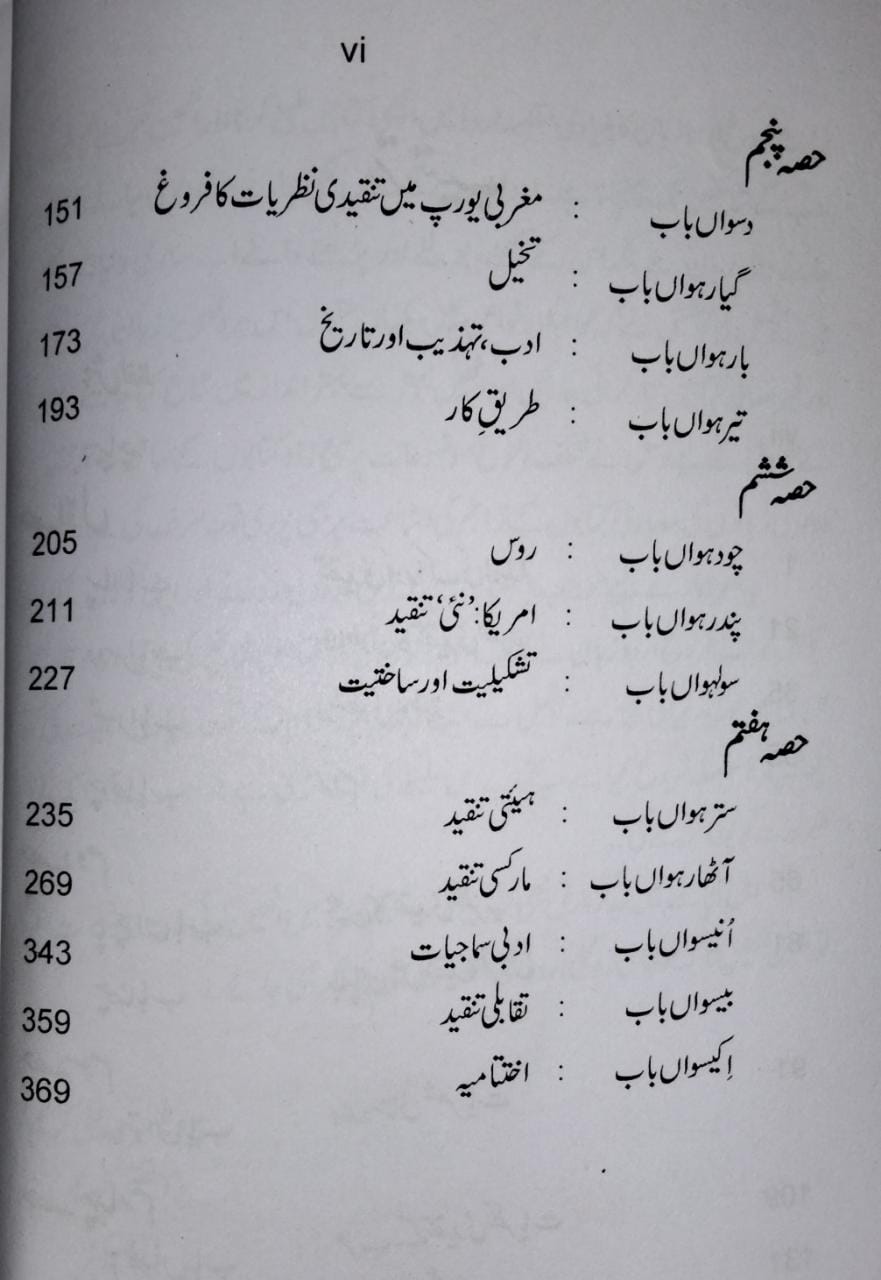 vi
حصہ پنجم
دسواں باب : مغربی یورپ میں تنقیدی نظریات کا فروغ 151
گیارہواں باب : تخیل 157
بارہواں باب : ادب، تہذیب اور تاریخ 173
تیرہواں باب : طریقِ کار 193
حصہ ششم
چودہواں باب : روس 205
پندرہواں باب : امریکا: ’نئی‘ تنقید 211
سولہواں باب : تشکیلیت اور ساختیت 227
حصہ ہفتم
سترہواں باب : ہیئتی تنقید 235
آٹھارہواں باب : مارکسی تنقید 269
اُنیسواں باب : ادبی سماجیات 343
بیسواں باب : تقابلی تنقید 359
اِکیسواں باب : اختتامیہ 369